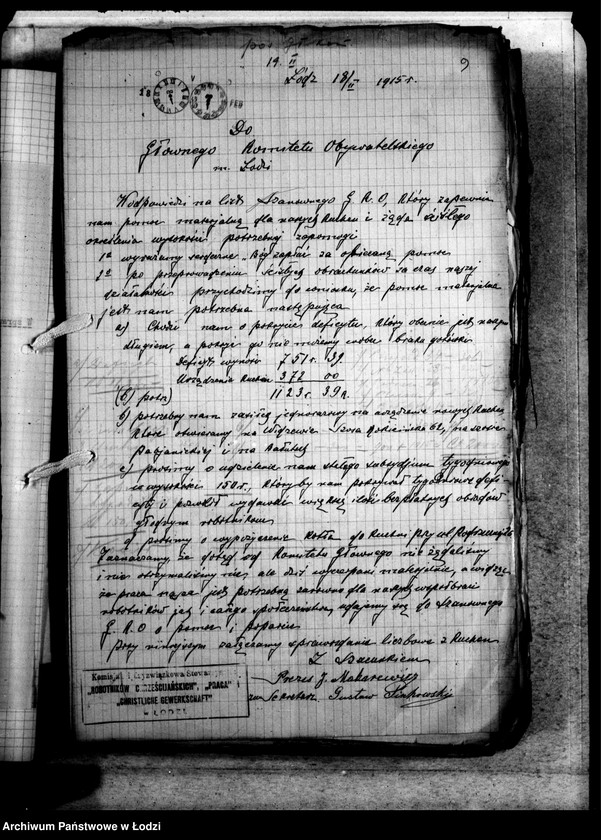 14.
II
9
18
FEB
Łódź 18/II 1915 r.
Do
Głównego Komitetu Obywatelskiego
m. Łodzi
W odpowiedzi na list Szanownego G. K. O, który zapewnia
nam pomoc materjalną dla naszych kuchen i żąda ścisłego
określenia wysokości potrzebnej zapomogi
1º wyrażamy serdeczne Bóg zapłać za obiecaną pomoc
2º po przeprowadzeniu ścisłych obrachunków za czas naszej
działalności przychodzimy do wniosku, że pomoc materjalna
jest nam potrzebna następująca
a) Chodzi nam o pokrycie deficytu, który obecnie jest naszym
długiem, a pokryć go nie możemy wobec braku gotówki
Deficyt wynosi 751 r. 39
Urządzenie kuchen 372 00
1123 r. 39 k.
b) potrzebny nam zasiłek jednorazowy na urządzenie nowych kuchen
które otwieramy na Widzewie Szosa Rokicińska 62, na szosie
Pabjanickiej i na Bałutach
c) prosimy o udzielenie nam stałego subsydjum tygodniowego
w wysokości 150 r., któryby nam pokrywał tygodniowe defi-
cyty i pozwolił wydawać większą ilość bezpłatnych obiadów
głodnym robotnikom
d) prosimy o wypożyczenie kotła do kuchni przy ul. Podrzecznej 26
Zaznaczamy że dotąd od Komitetu Głównego nie żądaliśmy
i nie otrzymaliśmy nic, ale dziś wyczerpani materjalnie, a widząc
że praca nasza jest potrzebną zarówno dla naszych współbraci
robotników jak i całego społeczeństwa, udajemy się do Szanownego
G. K. O o pomoc i poparcie
przy niniejszym załączamy sprawozdanie liczbowe z kuchen
Z Szacunkiem
Prezes J. Makarewicz
Sekretarz Gustaw
Komisja Międzyzwiązkowa Stowarzyszeń
„ROBOTNIKÓW CHRZEŚCIJAŃSKICH”, „PRACA” i
„CHRISTLICHE GEWERKSCHAFT”
w ŁODZI
Archiwum Państwowe w Łodzi